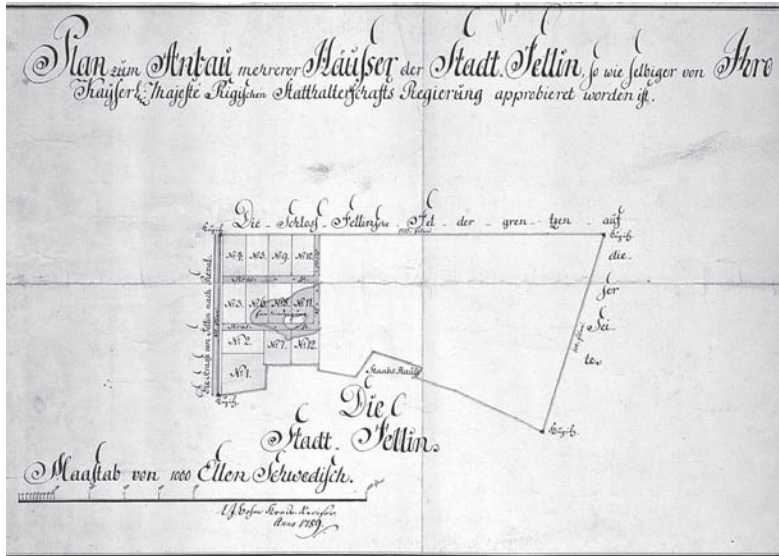 Plan zum Anbau mehrerer Häusser der Stadt Fellin, so wie selbiger von Ihro
Kayserl: Majesté Rigischen Statthalterschafts Regierung approbieret worden ist.
Die Schloss Fellinsche Felder grentzen auf
die-
ser
Sei-
te.
No 4. No 5. No 9. No 10.
No 3. No 6. No 8. No 11.
No 2. No 7. No 12.
No 1.
Die Strasse von Fellin nach Reval.
Die
Stadt Fellin.
Maasstab von 1000 Ellen Schwedisch.
Anno 1789